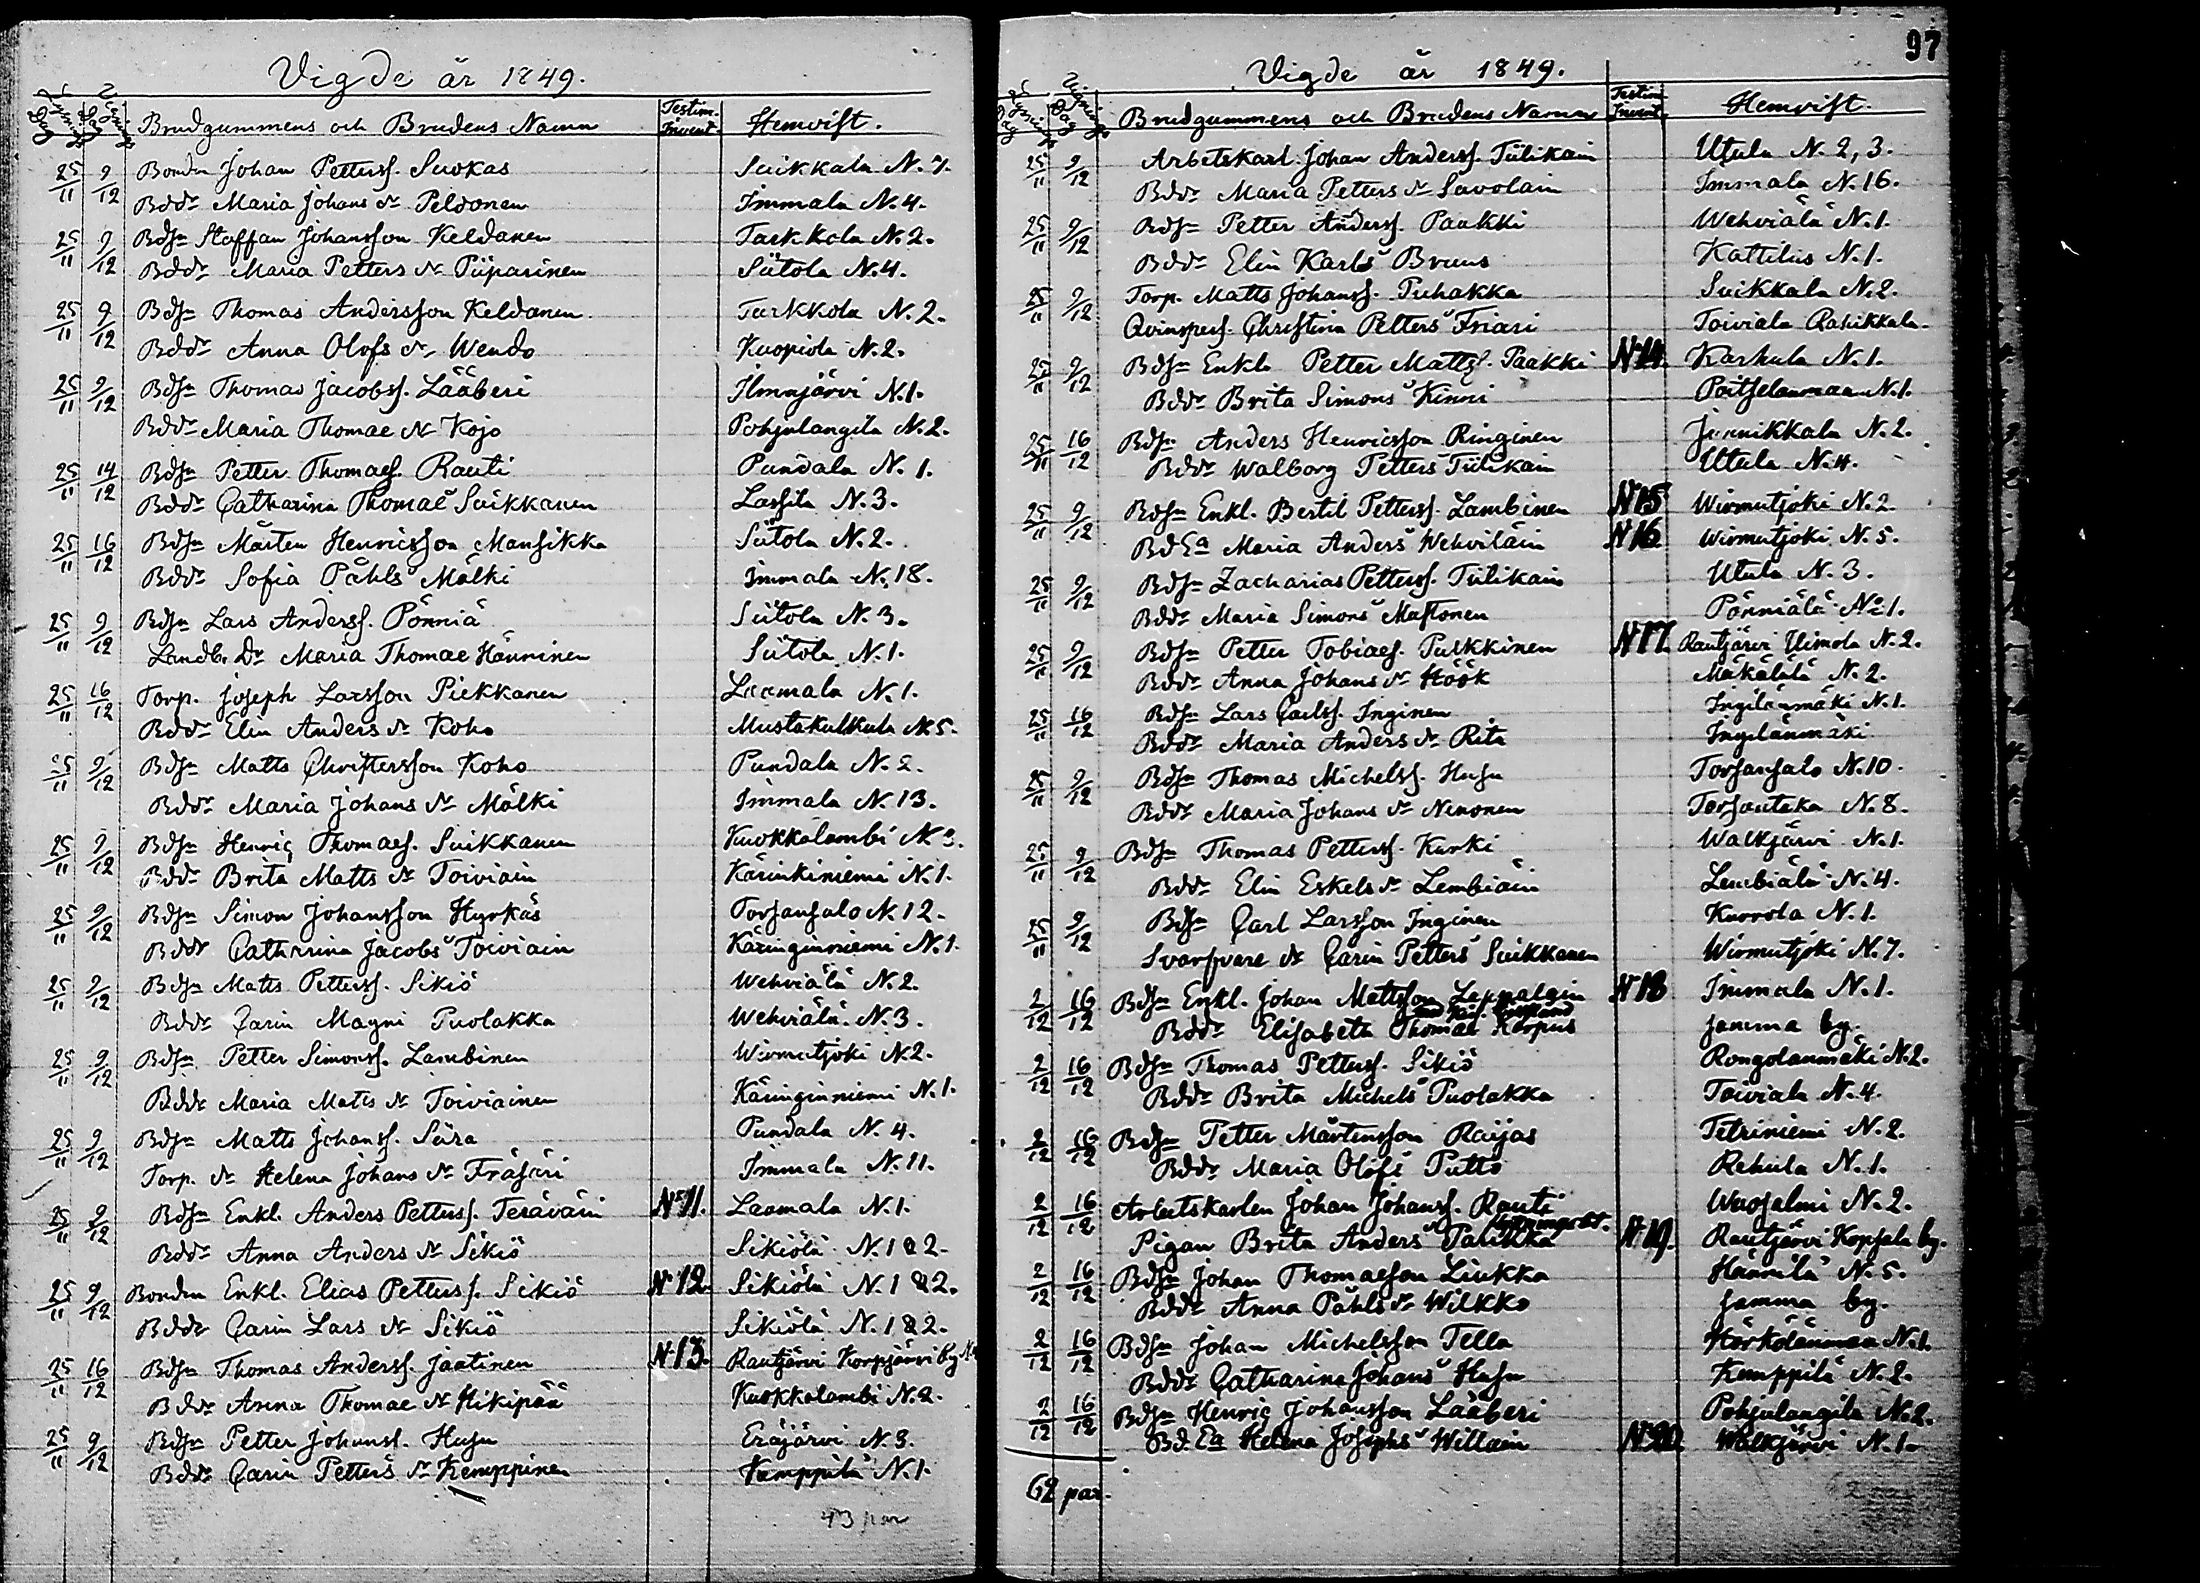 Vigde år 1849.
Lysnings Dag Vignings Dag Brudgummens och Brudens Namn Testim. Invent. Hemvist.
25/11 9/12 Bonden Johan Petterss. Suokas Suikkala N. 7.
Bddr Maria Johans dr Peldonen Immala N. 4.
25/11 9/12 Bdsn Staffan Johansson Keldanen Tarkkola N. 2.
Bddr Maria Petters dr Piiparinen Siitola N. 4.
25/11 9/12 Bdsn Thomas Andersson Keldanen Tarkkola N. 2.
Bddr Anna Olofs dr Wendo Kuopiola N. 2.
25/11 9/12 Bdsn Thomas Jacobss. Lääberi Ilmajärvi N. 1.
Bddr Maria Thomae dr Kojo Pohjalangila N. 2.
25/11 14/12 Bdsn Petter Thomaes. Rauti Pundala N. 1.
Bddr Catharina Thomae Suikkanen Lassila N. 3.
25/11 16/12 Bdsn Mårten Henricsson Mansikka Siitola N. 2.
Bddr Sofia Påhls Mälki Immala N. 18.
25/11 9/12 Bdsn Lars Anderss. Pönniä Siitola N. 3.
Landb. Dr Maria Thomae Hänninen Siitola N. 1.
25/11 16/12 Torp. Joseph Larsson Piekkanen Laamala N. 1.
Bddr Elin Anders dr Koho Mustakulkula N. 5.
25/11 9/12 Bdsn Matts Christersson Koho Pundala N. 2.
Bddr Maria Johans dr Mölki Immala N. 13.
25/11 9/12 Bdsn Henric Thomaes. Suikkanen Kuokkalambi N. 3.
Bddr Brita Matts dr Toiviain Kärinkiniemi N. 1.
25/11 9/12 Bdsn Simon Johansson Hyrkäs Torsansalo N. 12.
Bddr Catharina Jacobs Toiviain Käringinniemi N. 1.
25/11 9/12 Bdsn Matts Petterss. Sikiö Wehviälä N. 2.
Bddr Carin Magni Puolakka Wehviälä N. 3.
25/11 9/12 Bdsn Petter Simonss. Lambinen Wirmutjoki N. 2.
Bddr Maria Matts dr Toiviainen Käringinniemi N. 1.
25/11 9/12 Bdsn Matts Johanss. Siira Pundala N. 4.
Torp. dr Helena Johans dr Fräsäri Immala N. 11.
25/11 9/12 Bdsn Enkl. Anders Petterss. Teräväin N 11. Laamala N. 1.
Bddr Anna Anders dr Sikiö Sikiölä N. 1 & 2.
25/11 9/12 Bonden Enkl. Elias Petterss. Sikiö N 12. Sikiölä N. 1 & 2.
Bddr Carin Lars dr Sikiö Sikiölä N. 1 & 2.
25/11 16/12 Bdsn Thomas Anderss. Jaatinen N. 13. Rautjärvi Korpjärvi by
Bddr Anna Thomae dr Hikipää Kuokkalambi N. 2.
25/11 9/12 Bdsn Petter Johanss. Husu Eräjärvi N. 3.
Bddr Carin Petters dr Kemppinen Kemppilä N. 1.
43 par
97
Vigde år 1849.
Lysnings Dag Vignings Dag Brudgummens och Brudens Namn Testim. Invent. Hemvist.
25/11 9/12 Arbetskarl. Johan Anderss. Tiilikain Utula N. 2, 3.
Bddr Maria Petters dr Savolain Immala N. 16.
25/11 9/12 Bdsn Petter Anderss. Paakki Wehviälä N. 1.
Bddr Elin Karls Bruus Kattilus N. 1.
25/11 9/12 Torp. Matts Johanss. Puhakka Suikkala N. 2.
Qvinspers. Christina Petters Friari Toiviala Rahikkala.
25/11 9/12 Bdsn Enkl. Petter Mattss. Paakki N 14. Karhula N. 1.
Bddr Brita Simons Kinni Poitselanmaa N. 1.
25/11 16/12 Bdsn Anders Henricsson Ringinen Junikkala N. 2.
Bddr Walborg Petters Tiilikain Utula N. 4.
25/11 9/12 Bdsn Enkl. Bertil Petterss. Lambinen N 15 Wirmutjoki N. 2
Bd Ea Maria Anders Wehviläin N 16 Wirmutjoki N. 5.
25/11 9/12 Bdsn Zacharias Petterss. Tiilikain Utula N. 3.
Bddr Maria Simons Mastonen Pönniälä N. 1.
25/11 9/12 Bdsn Petter Tobiaes. Pulkkinen N 17. Rautjärvi Uimola N. 2.
Bddr Anna Johans dr Höök Mäkälälä N. 2.
25/11 16/12 Bdsn Lars Carlss. Inginen Ingilänmäki N. 1.
Bddr Maria Anders dr Rita Ingilänmäki
25/11 9/12 Bdsn Thomas Michelss. Husu Torsansalo N. 10.
Bddr Maria Johans dr Nenonen Torsantaka N. 8.
25/11 9/12 Bdsn Thomas Petterss. Kurki Walkjärvi N. 1.
Bddr Elin Eskels dr Lembiäin Lembiälä N. 4.
25/11 9/12 Bdsn Carl Larsson Inginen Kurrola N. 1.
Svarfvare dr Carin Petters Suikkanen Wirmutjoki N. 7.
2/12 16/12 Bdsn Enkl. Johan Mattsson Leppalain N 18 Immala N. 1.
Bddr Elisabeta Thomae Korpus samma by.
2/12 16/12 Bdsn Thomas Petterss. Sikiö Rongolanmäki N. 2.
Bddr Brita Michels Puolakka Toiviala N. 4.
2/12 16/12 Bdsn Petter Mårtensson Raijas Tetriniemi N. 2.
Bddr Maria Olofs Putto Rehula N. 1.
2/12 16/12 Arbetskarlen Johan Johanss. Rauti Wuosalmi N. 2.
Pigan Brita Anders Parikka N 19. Rautjärvi Kopsala by.
2/12 16/12 Bdsn Johan Thomaeson Liukko Häunilä N. 5.
Bddr Anna Påhls dr Wilkko samma by.
2/12 16/12 Bdsn Johan Michelsson Tella Härkölänmaa N. 1.
Bddr Catharina Johans Husu Kemppilä N. 2.
2/12 16/12 Bdsn Henric Johansson Lääberi Pohjalangila N. 2.
Bd. Ea Helena Josephs Willain N 20. Walkjärvi N. 1.
62 par.
62 par